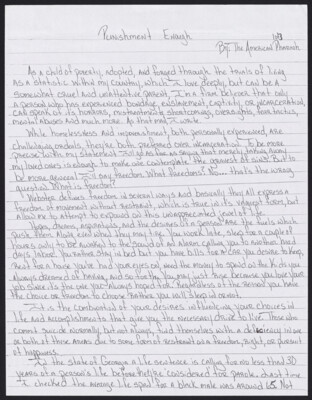 Punishment Enough
1of3
By: The American Pharaoh
As a child of poverty, adopted, and forged through the trials of living
as a statistic within my country, which I love deeply, but can be a
somewhat cruel and unattentive parent, I'm a firm believer that only
a person who has experienced bondage, enslavement, captivity, or incarceration,
can speak of its horrors, mistreatments, shortcomings, oversights, fanatics,
mental abuses and much more. As that may, I write.
While homelessness and imprisonment, both personally experienced, are
challenging ordeals, they're both preferred over incarceration. To be more
precise with my statement I'll go as far as saying that merely
my loved ones is enough to make one contemplate the gravest of sins. But to
be more general I'll say freedom. What freedom? Now... that's the wrong
question. What is freedom?
Webster defines freedom in several ways and basically they all express a
freedom of movement without restraint, which is true in its simplest form, but
allow me to attempt to expound on this unappreciated jewel of life.
Hopes, dreams, aspirations, and the desires of a person are the fuels which
push them. Alone and when they may tire. You work late, sleep for a couple of
hours only to be awoken to the sound of an alarm calling you to another hard
days labor. You rather stay in bed but you have bills or near you desire to then,
rent for a house you've had your eyes on, need the money to spend on the kids you
always dreamed of having, and so forth. You may just rise because you love your
job since it's the one you always hoped for. Regardless of the reason you have
the choice or freedom to choose rather you will sleep in or not.
It is the combination of your desires intwining your choices in
life and accomplishments that give you the necessary drive to live. Those who
commit suicide normally, but not always, find themselves with a deficiency in one
or both of those areas due to some form of restraint on a freedom, right, or pursuit
of happiness.
In the state of Georgia a life sentence is calling for no less than 30
years of a person's life before he/she considered for parole, first time.
I checked the average life span for a black male was around 65. Not